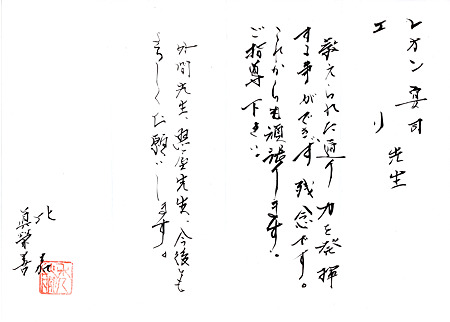 レオン 要司
エリ 先生
教えられた通り 力を発揮
する事ができず 残念です。
これからも頑張ります!
ご指導 下さい!
外間先生、與座先生、今後とも
よろしくお願いします。
北
真栄 泰
善